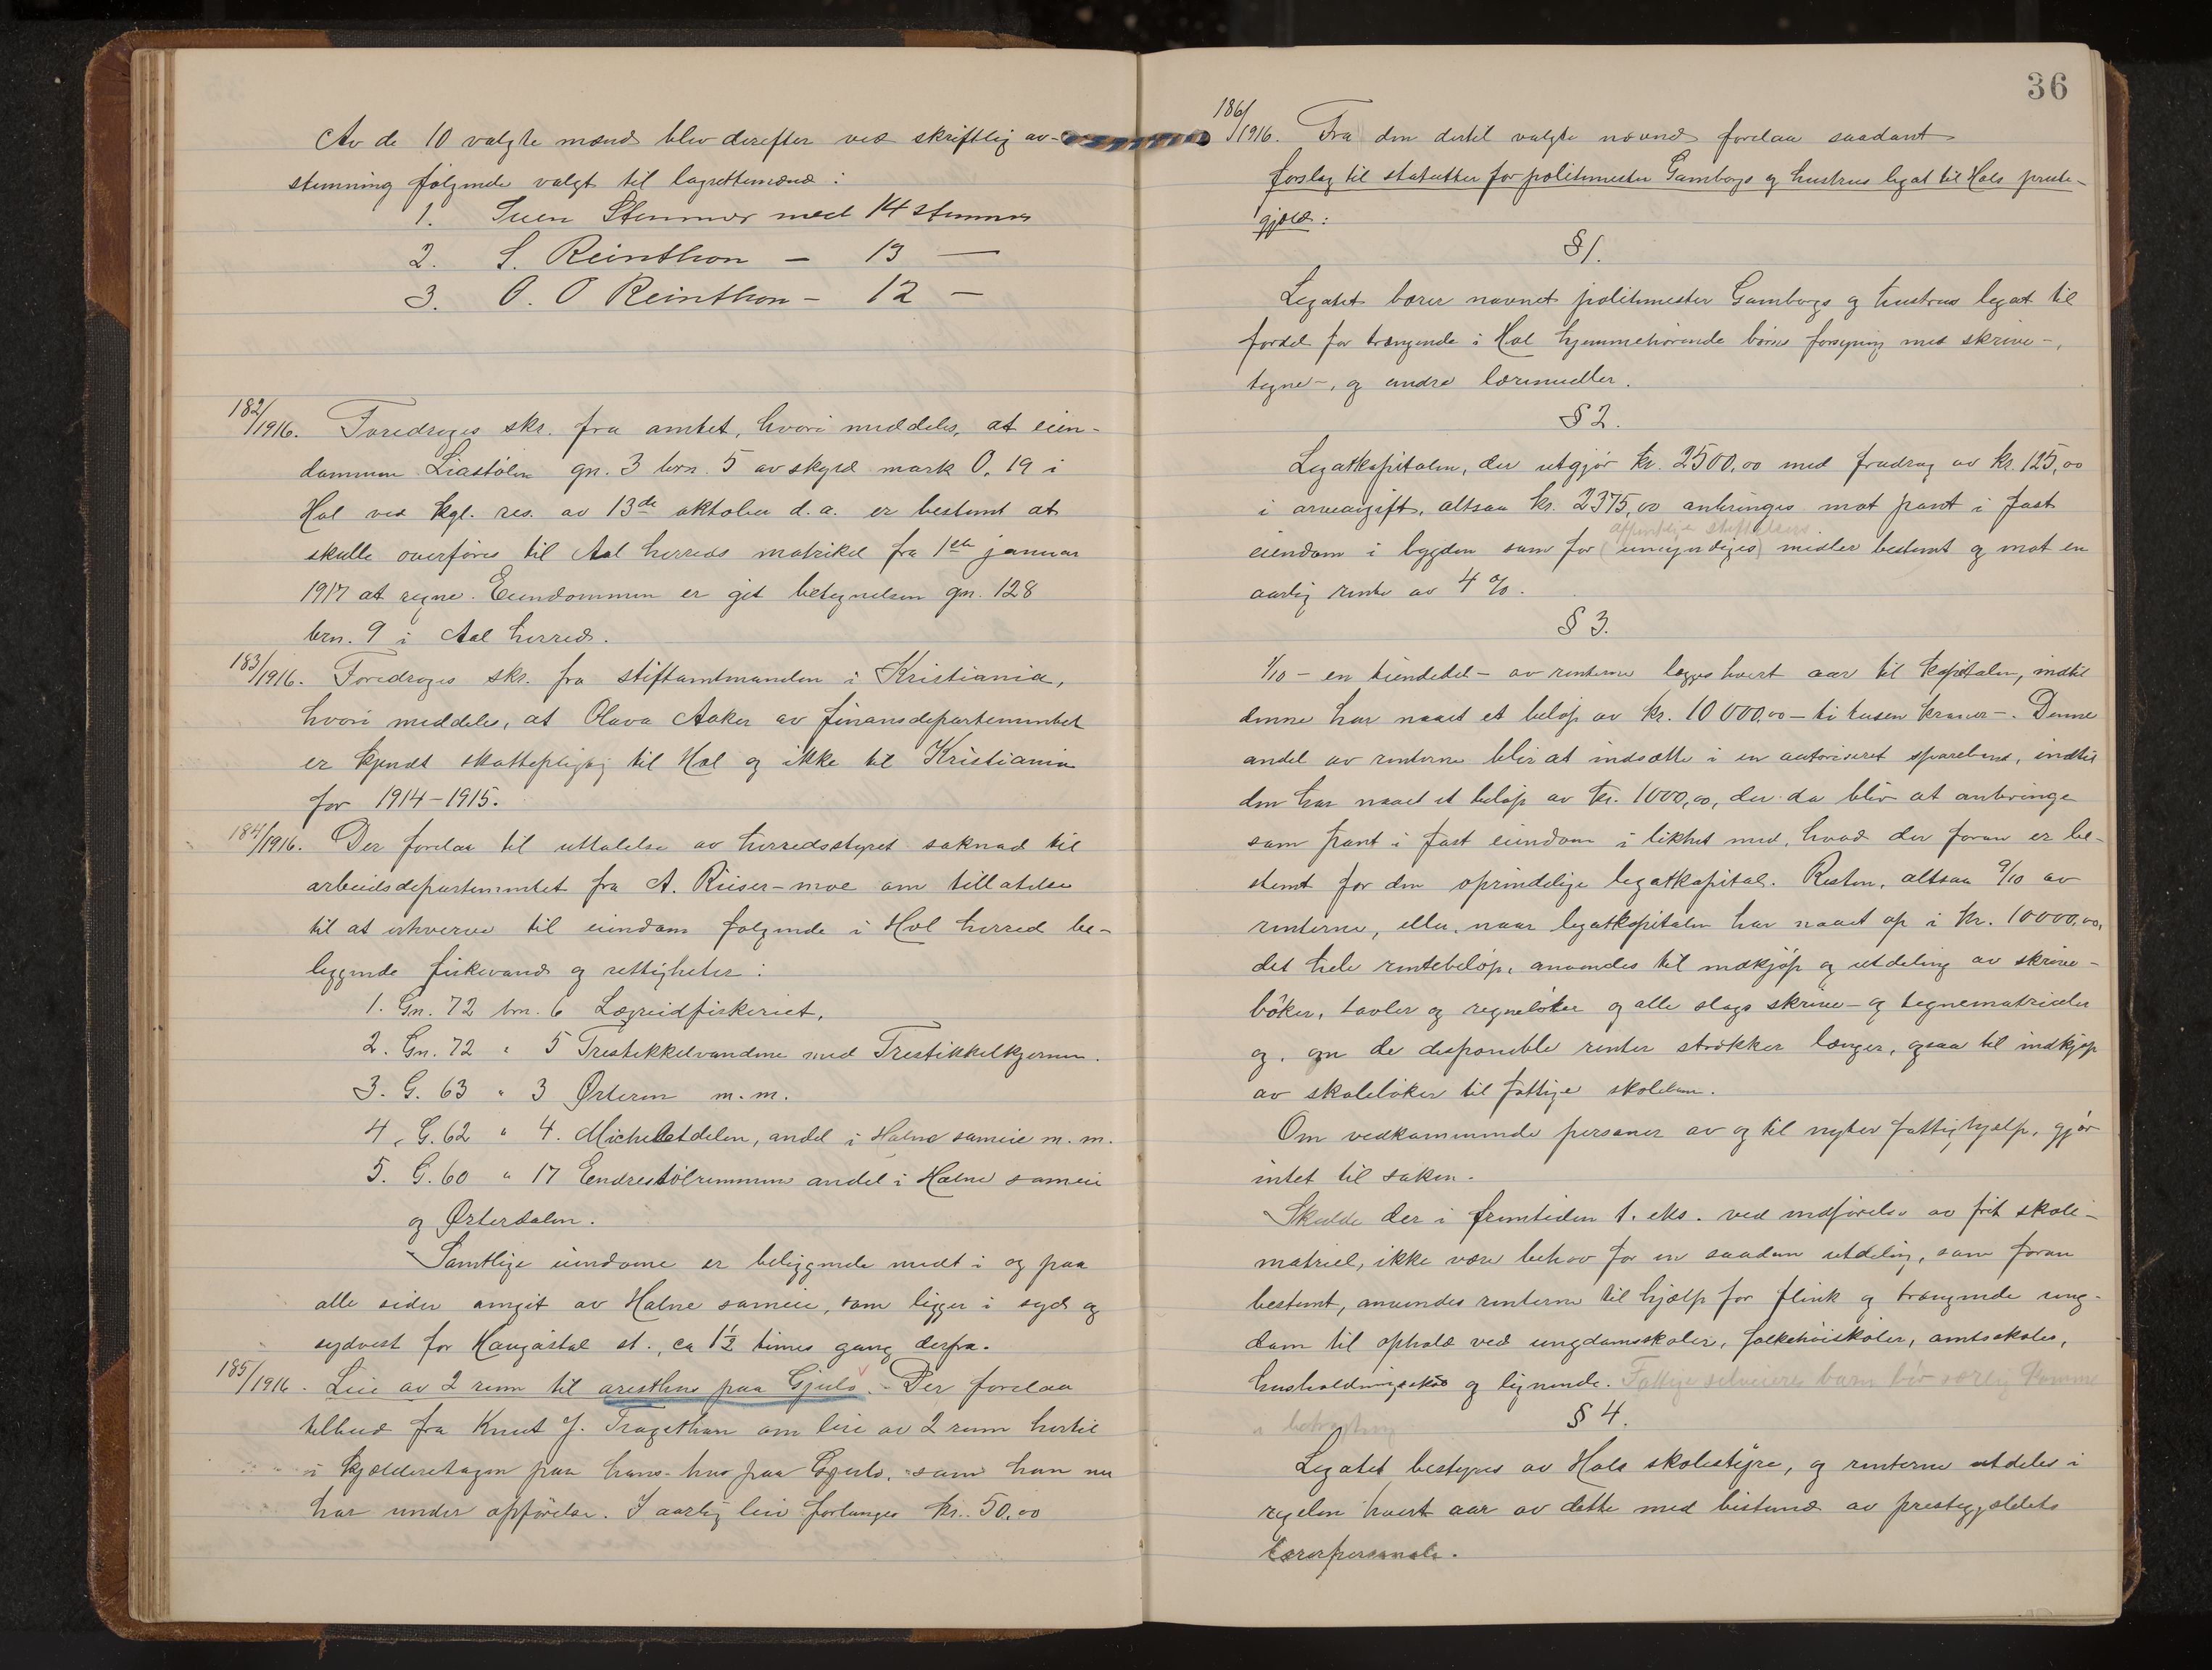 Av de 10 valgte mænd blev derefter ved skriftlig av-
stemning følgende valgt til lagrettemænd:
1. Sven Stemmer med 14 stemmer
2. S. Reinthon – 13 —
3. O. O Reinthon – 12 —
182/1916. Foredroges skr. fra amtet, hvori meddeles, at eien-
dommen Liastølen gn. 3 brn. 5 av skyld mark 0,19 i
Hol ved kgl. res. av 13de oktober d. a. er bestemt at
skulle overføres til Aal herreds matrikel fra 1ste januar
1917 at regne. Eiendommen er git betegnelsen gn. 128
brn. 9 i Aal herred.
183/1916. Foredroges skr. fra stiftamtmanden i Kristiania,
hvori meddeles, at Olava Aaker av finansdepartementet
er kjendt skattepligtig til Hol og ikke til Kristiania
for 1914–1915.
184/1916. Der forelaa til uttalelse av herredsstyret søknad til
arbeidsdepartementet fra A. Riiser-moe om tillatelse
til at erhverve til eiendom følgende i Hol herred be-
liggende fiskevand og rettigheter:
1. Gn. 72 brn. 6 Lægreidfiskeriet.
2. Gn. 72 " 5 Trestikkelvandene med Trestikkelkjernen.
3. G. 63 " 3 Ørteren m.m.
4. G. 62 " 4. Michelbotdelen, andel i Halne sameie m. m.
5. G. 60 " 17 Endrestølremmen andel i Halne sameie
og Ørterdalen.
Samtlige eiendome er beliggende midt i og paa
alle sider omgit av Halne sameie, som ligger i syd og
sydvest for Haugastøl st., ca 1½ times gang derfra.
185/1916. Leie av 2 rum til aresthus paa Gjeilo. – Der forelaa
tilbud fra Knut J. Tragethon om leie av 2 rum hertil
i kjælderetagen paa hans hus paa Gjeilo, som han nu
har under opførelse. I aarlig leie forlanges kr. 50,00
36
186/1916. Fra den dertil valgte nævnd forelaa saadant
forslag til statutter for politimester Gambergs og hustrus legat til Hols preste-
gjæld:
§ 1.
Legatet bærer navnet politimester Gambergs og hustrus legat til
fordel for trængende i Hol hjemmehørende børns forsyning med skrive-,
tegne-, og andre læremidler.
§ 2.
Legatkapitalen, der utgjør kr. 2500,00 med fradrag av kr. 125,00
i arveavgift, altsaa kr. 2375,00 anbringes mot pant i fast
offentlige stiftelsers
eiendom i bygden som for (umyndiges) midler bestemt og mot en
aarlig rente av 4 %.
§ 3.
1/10 – en tiendedel – av renterne lægges hvert aar til kapitalen, indtil
denne har naaet et beløp av kr. 10 000,00 – ti tusen kroner –. Denne
andel av renterne blir at indsætte i en autoriseret sparebank, indtil
den har naaet et beløp av kr. 1000,00, der da blir at anbringe
som pant i fast eiendom i likhet med, hvad der foran er be-
stemt for den oprindelige legatkapital. Resten, altsaa 9/10 av
renterne, eller, naar legatkapitalen har naaet op i kr. 10000,00,
det hele rentebeløp, anvendes til indkjøp og utdeling av skrive-
bøker, tavler og regnebøker og alle slags skrive- og tegnematrialer
og, om de disponible renter strækker længer, ogsaa til indkjøp
av skolebøker til fattige skolebarn.
Om vedkommende personer av og til nyter fattighjælp, gjør
intet til saken.
Skulde der i fremtiden t. eks. ved indførelse av frit skole-
matriel, ikke være behov for en saadan utdeling, som foran
bestemt, anvendes renterne til hjælp for flink og trængende ung-
dom til ophold ved ungdomsskoler, folkehøiskoler, amtsskoler,
husholdningsskole og lignende. Fattige selveieres barn bør særlig komme
i betragtning
§ 4.
Legatet bestyres av Hols skolestyre, og renterne utdeles i
regelen hvert aar av dette med bistand av prestegjældets
lærerpersonale.